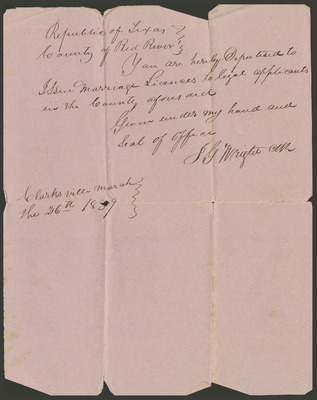 Republic of Texas
County of Red River
You are hereby Deputised to
Issue Marriage Licences to legal applicants
in the County aforesaid
Given under my hand and
Seal of Office
J G Wright Clk
Clarksville March
the 26th 1839